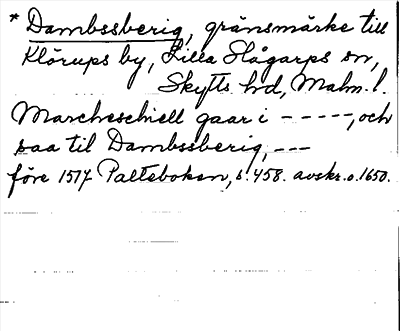 * Dambssberig, gränsmärke till
Klörups by, Lilla Slågarps sn,
Skytts hd, Malm. l.
Marcheschiell gaar i - - - - -, och
saa til Dambssberig, ---
före 1517 Palteboken, s. 458. avskr. o. 1650.